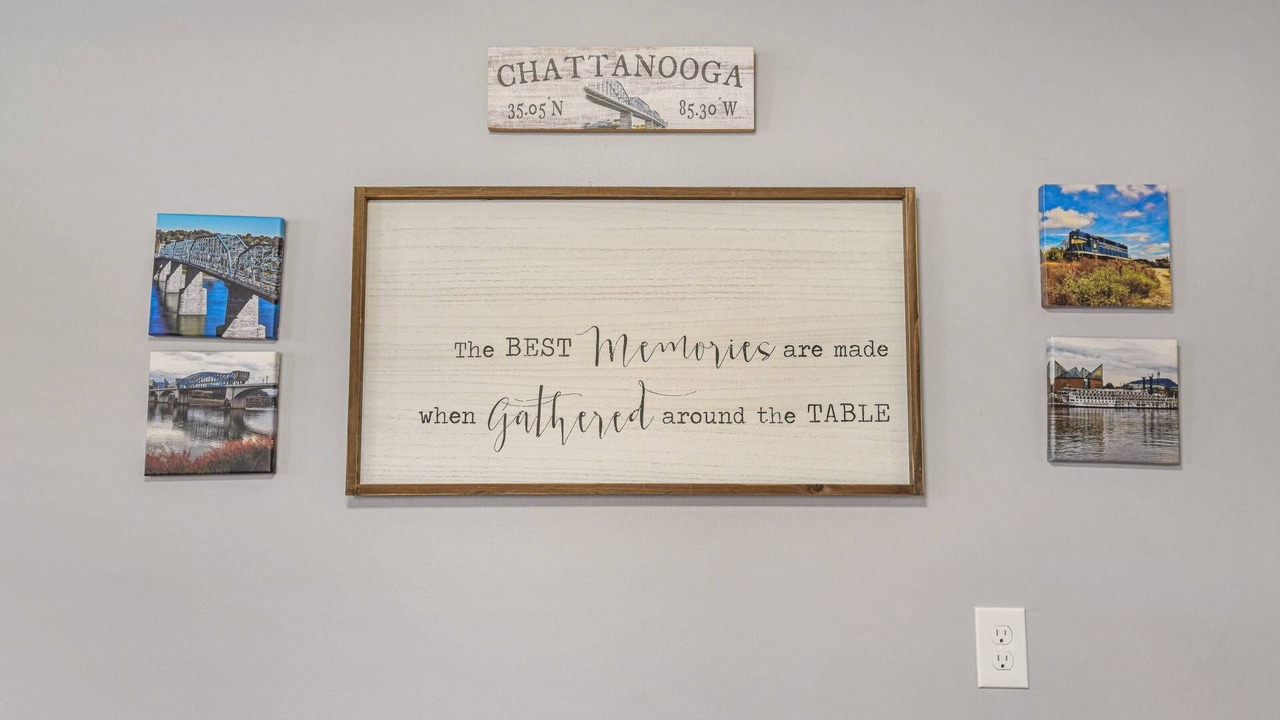 CHATTANOOGA
35.05°N 85.30°W
The BEST Memories are made
when Gathered around the TABLE